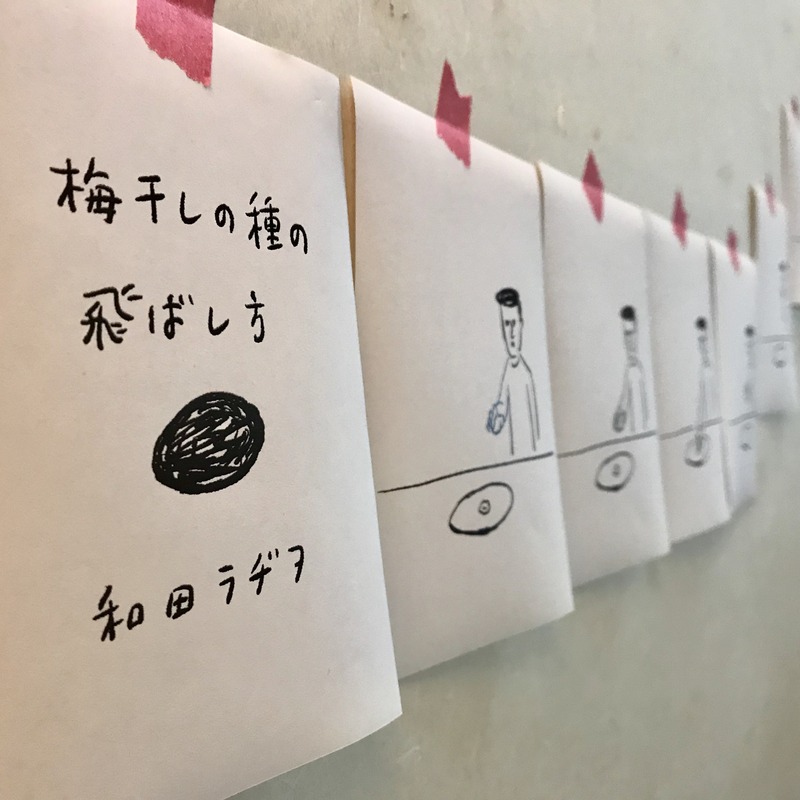 梅干しの種の
飛ばし方
和田ラヂヲ